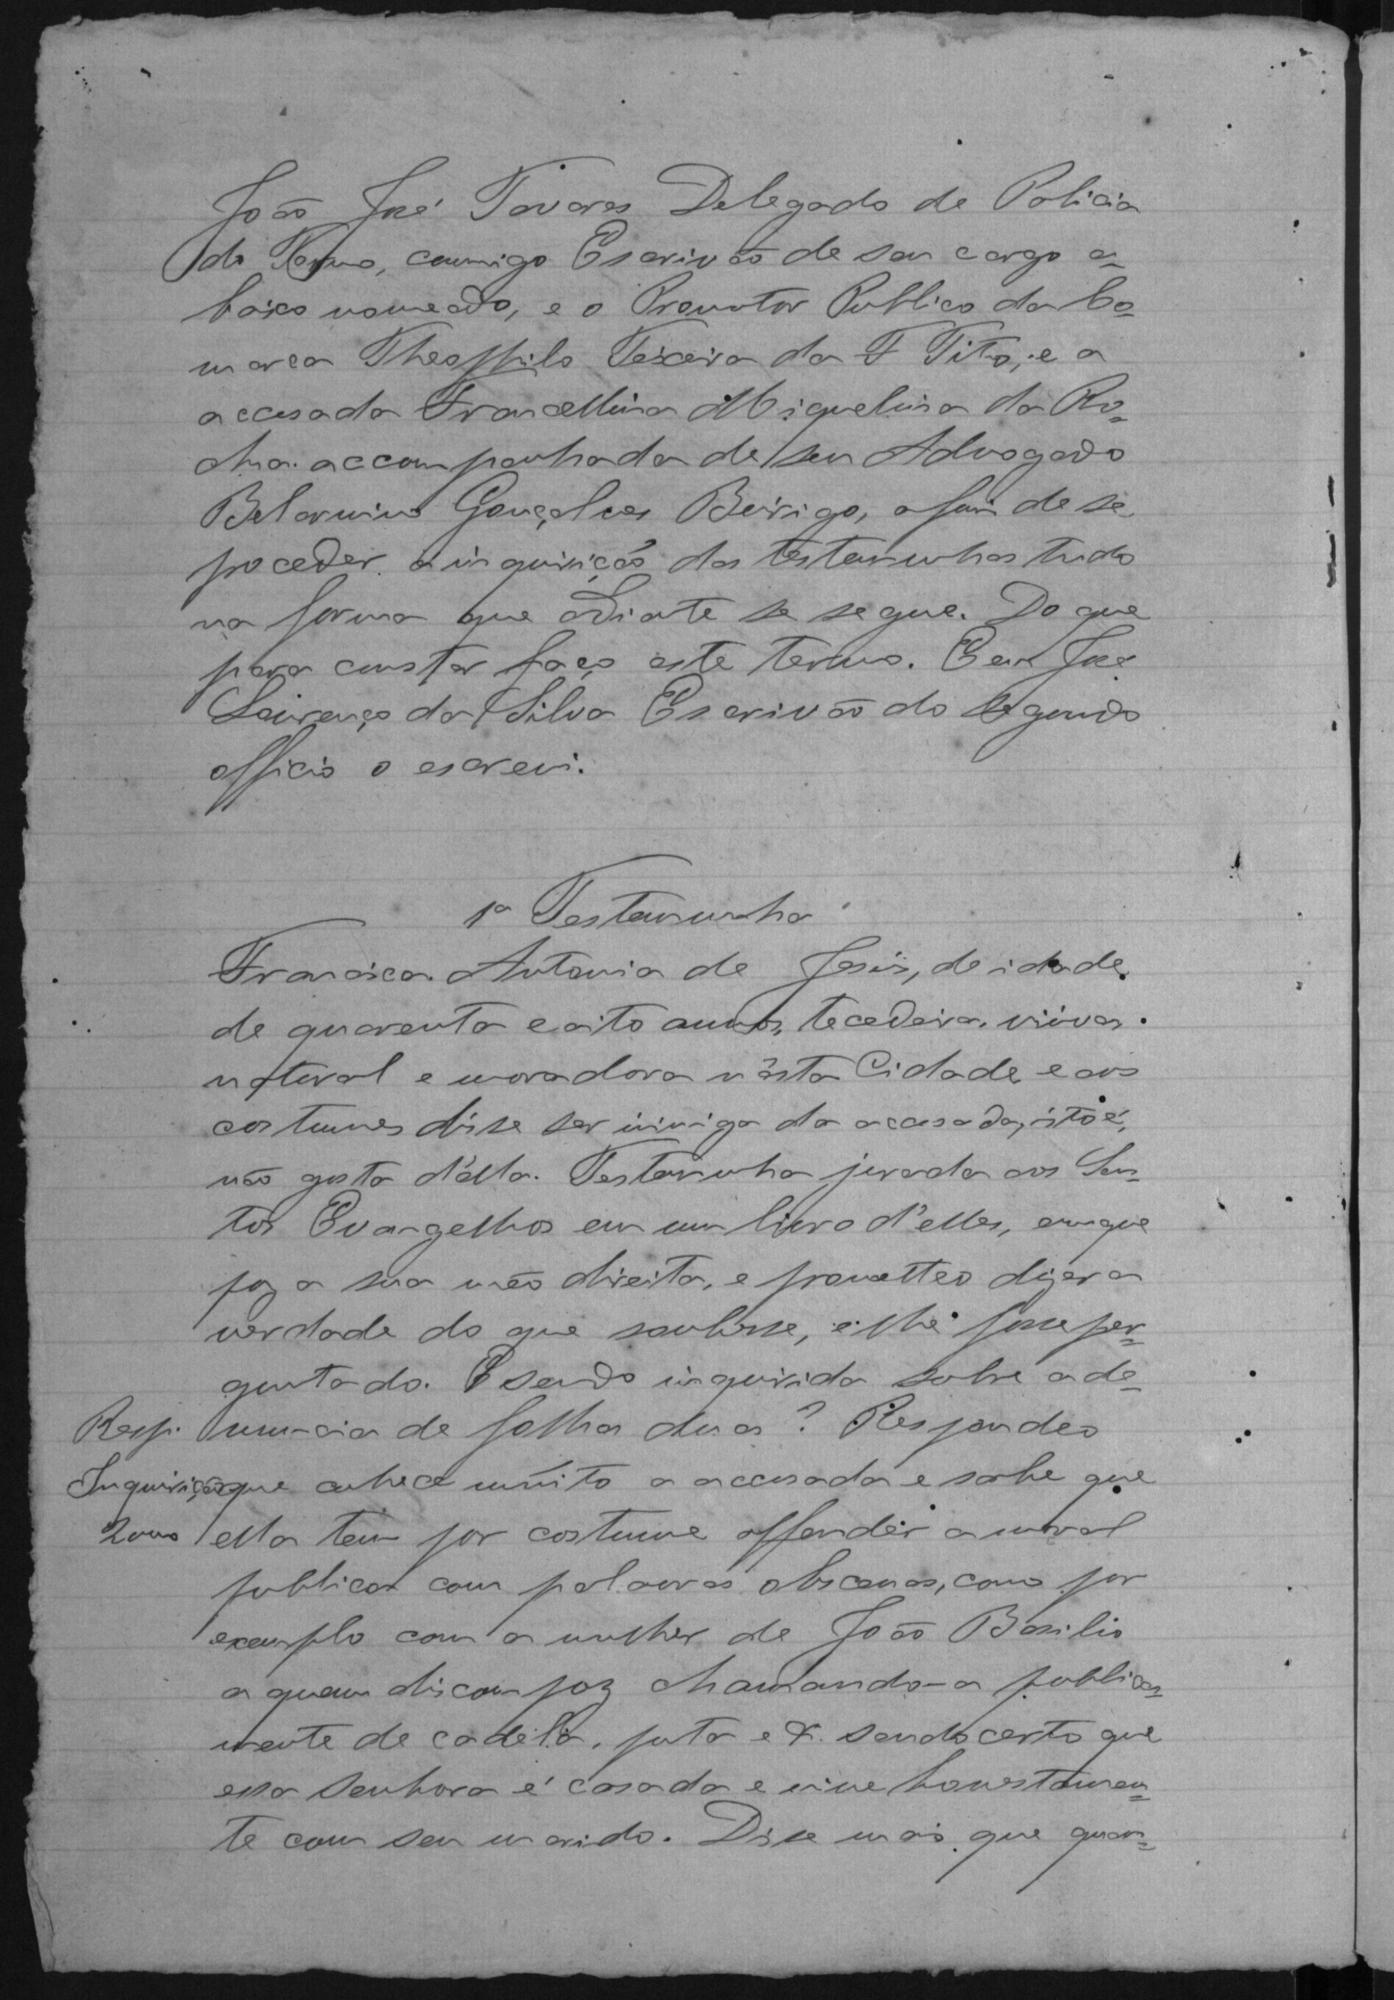 João José Tavares Delegado de Policia
do Termo, commigo Escrivão de seu cargo a=
baixo nomeado, e o Promotor Publico da Co=
marca Theophilo Teixeira da F Tito, e a
accusada Francellina Miquelina da Ro=
cha accompanhada de seu Advogado
Belarmino Gonçalves Beirigo, afim de se
poceder a inquirição das testemunhas tudo
na forma que adiante se segue. Do que
para constar faço este termo. Eeu José
Lourenço da Silva Escrivão do segundo
officio o escrevi.
1ª Testemunha
Francisca Antonia de Jesús, de idade
de quarenta e oito annos, tecedeira, viúva
natural e moradora nésta Cidade e aos
costumes disse ser inimiga da accusada, isto é,
não gosta d'élla. Testemunha jurada aos San=
tos Evangelhos em um livro d'elles, em que
poz a sua mão direita, e prometteo dizer a
verdade do que soubesse, e lhe fosse per=
guntado. E sendo inquirida sobre a de=
Resp. nuncia de folhas duas? Respondeo
Inquirição que conhece muito a accusada e sabe que
2000 ella tem por costume offender a moral
publica com palavras obscenas, como por
exemplo com a mulher de João Basilio
a quem discompoz chamando-a publica=
mente de cadéla, puta e &. sendo certo que
essa senhora é casada e vive honestamen=
te com seu marido. Disse mais que quan=